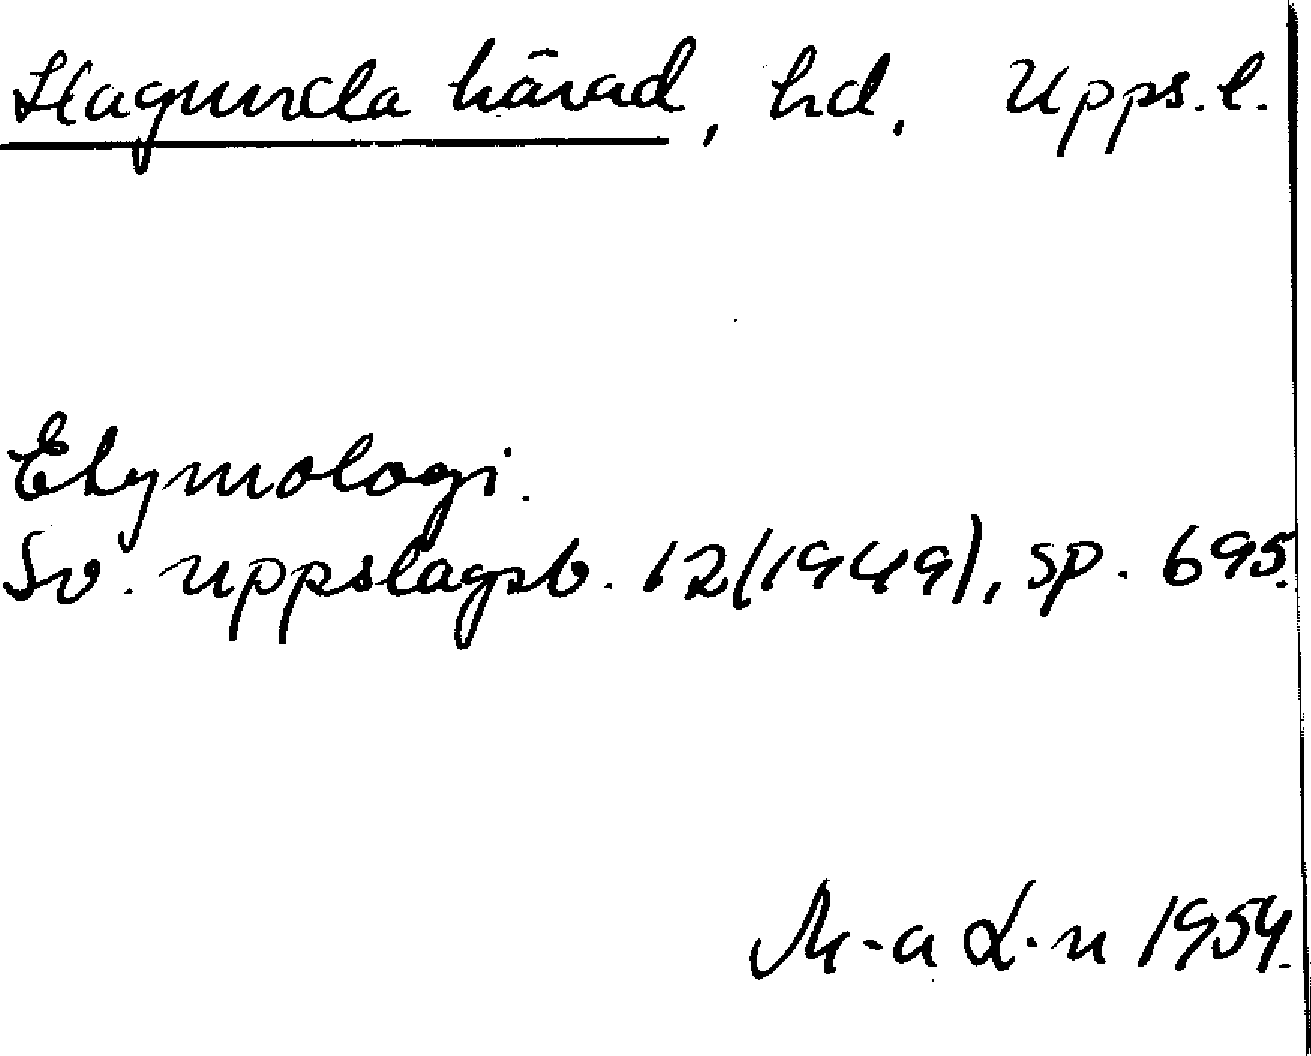 Hagunda härad, hd. Upps. l.
Etymologi.
Sv. uppslagsb. 12(1949), sp. 695.
M-a L-n 1954.